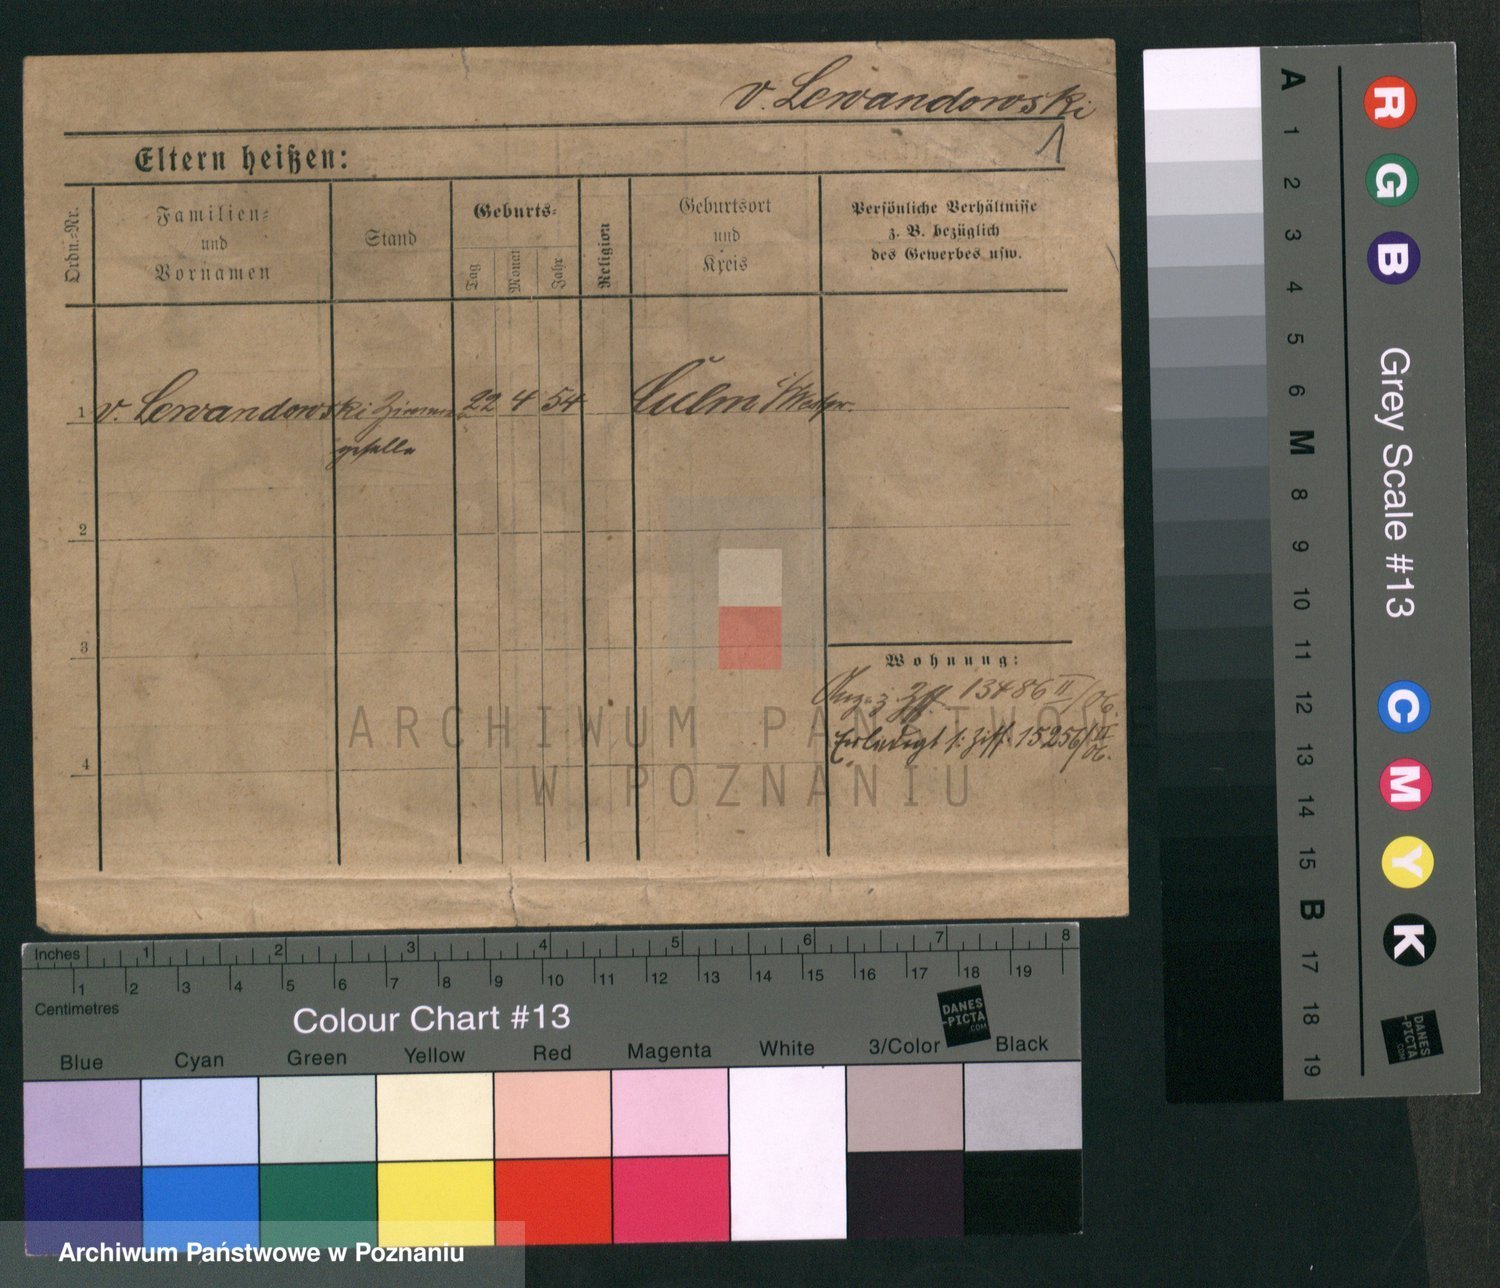 v. Lewandowski
1
Eltern heißen:
Ordn.-Nr.
Familien-
und
Vornamen
Stand
Geburts-
Tag
Monat
Jahr
Religion
Geburtsort
und
Kreis
Persönliche Verhältnisse
z. B. bezüglich
des Gewerbes usw.
1 v. Lewandowski Zimmer 22 4 54 Culm i/Westpr.
geselle
2
3
4
Wohnung:
13486 II/06.
Erledigt s. Ziff. 15256/II 06.
ARCHIWUM PAŃSTWOWE
W POZNANIU
Inches 1 2 3 4 5 6 7 8
1 2 3 4 5 6 7 8 9 10 11 12 13 14 15 16 17 18 19
Centimetres
Colour Chart #13
DANES
-PICTA
.COM
Blue Cyan Green Yellow Red Magenta White 3/Color Black
Archiwum Państwowe w Poznaniu
A 1 2 3 4 5 6 M 8 9 10 11 12 13 14 15 B 17 18 19
R G B
Grey Scale #13
C M Y K
DANES
-PICTA
.COM